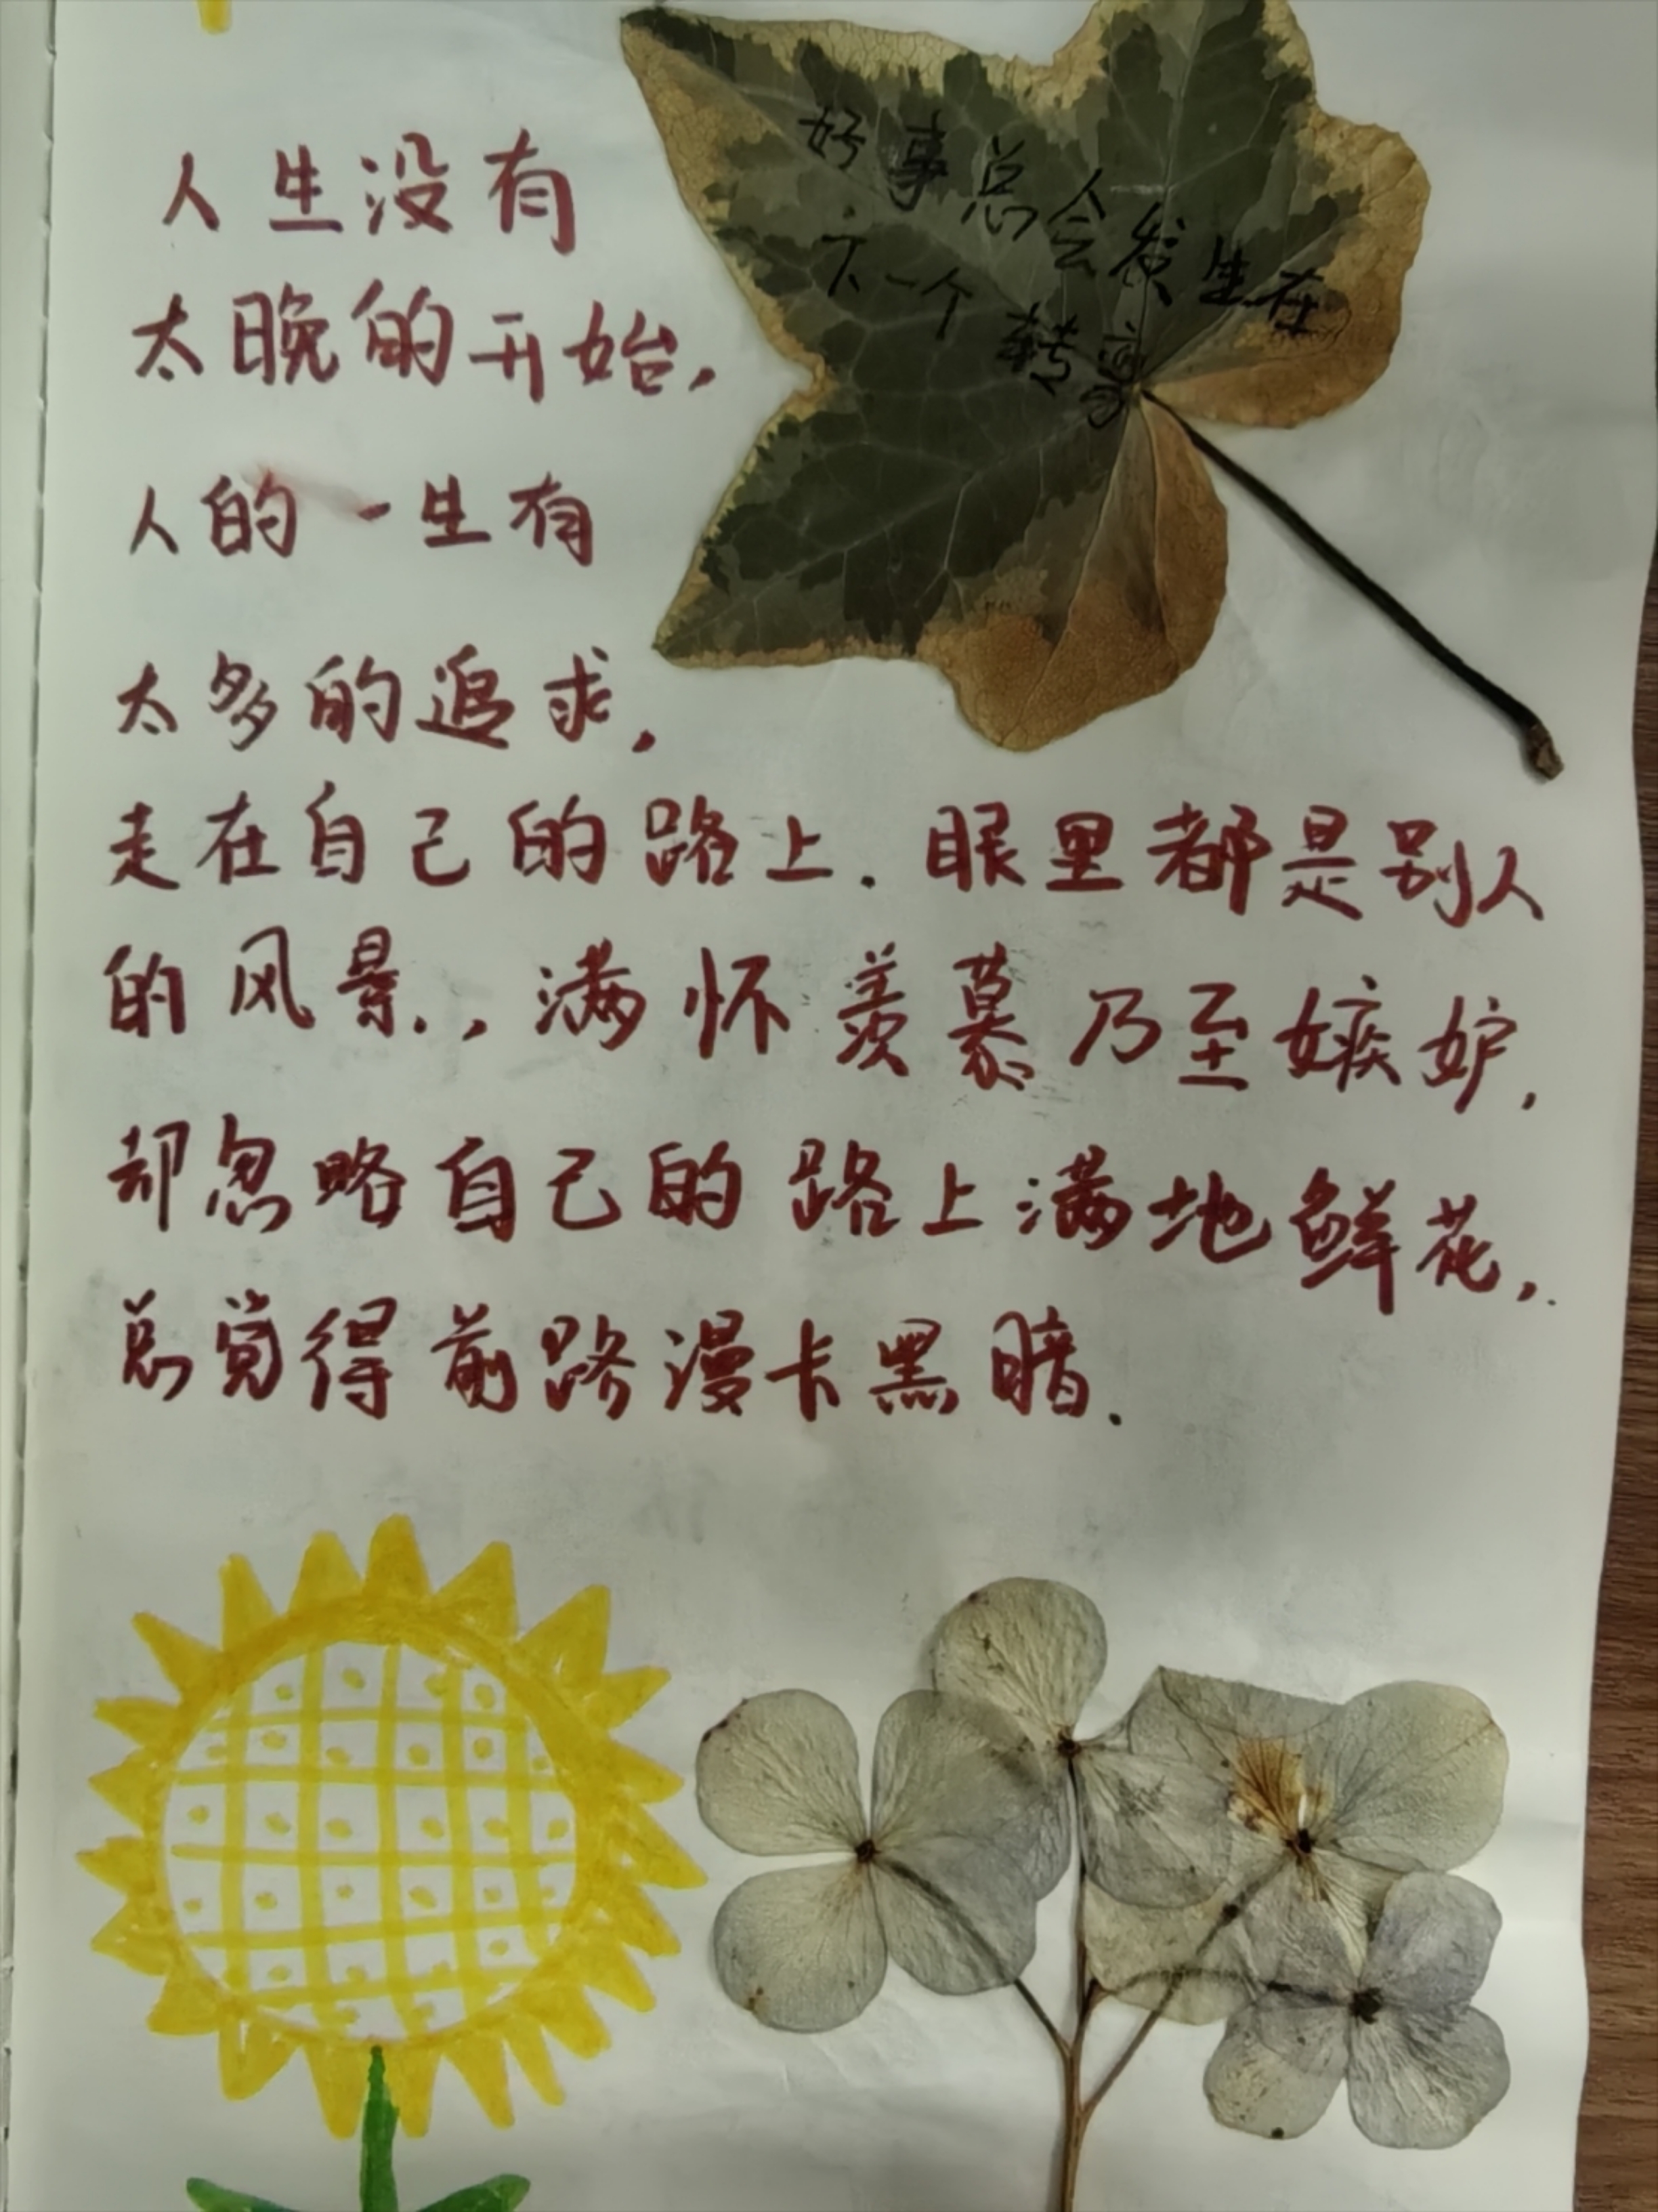 人生没有
太晚的开始,
人的一生有
太多的追求,
走在自己的路上.眼里都是别人
的风景.,满怀羡慕乃至嫉妒,
却忽略自己的路上满地鲜花,.
总觉得前路漫卡黑暗.
好事总会发生在
下一个转弯